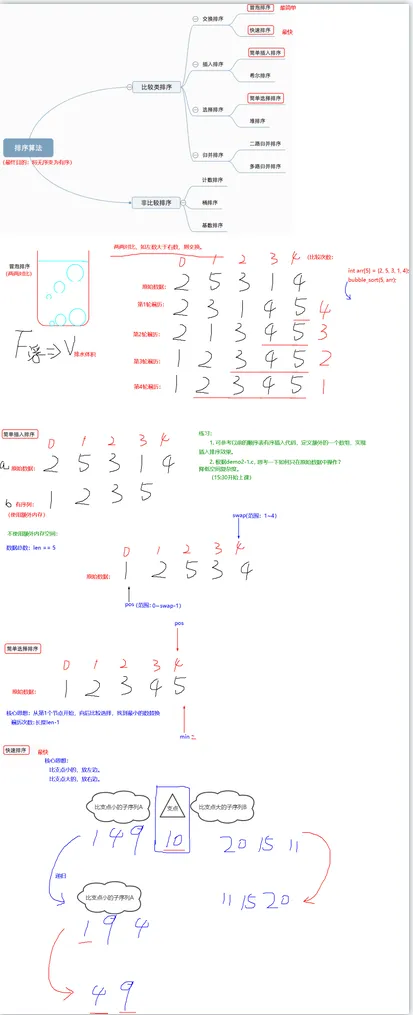 排序算法
(最终目的：将无序变为有序)
比较类排序
非比较排序
交换排序
冒泡排序 最简单
快速排序 最快
插入排序
简单插入排序
希尔排序
选择排序
简单选择排序
堆排序
归并排序
二路归并排序
多路归并排序
计数排序
桶排序
基数排序
冒泡排序
(两两对比)
F浮=>V排水体积
两两对比，如左数大于右数，则交换。
0 1 2 3 4 (比较次数：
原始数据： 2 5 3 1 4
第1轮遍历： 2 3 1 4 5 4
第2轮遍历： 2 1 3 4 5 3
第3轮遍历： 1 2 3 4 5 2
第4轮遍历： 1 2 3 4 5 1
int arr[5] = {2, 5, 3, 1, 4};
bubble_sort(5, arr);
简单插入排序
0 1 2 3 4
a 原始数据： 2 5 3 1 4
b 有序列： 1 2 3 5
(使用额外内存)
练习：
1, 可参考以前的顺序表有序插入代码，定义额外的一个数组，实现
插入排序效果。
2, 根据demo2-1.c, 思考一下如何只在原始数据中操作？
降低空间复杂度。
(15:30开始上课)
不使用额外内存空间：
数据总数：len == 5
swap(范围：1~4)
0 1 2 3 4
原始数据： 1 2 5 3 4
pos (范围: 0~swap-1)
简单选择排序
pos
0 1 2 3 4
原始数据： 1 2 3 4 5
核心思想：从第1个节点开始，向后比较选择，找到最小的数替换
遍历次数:长度len-1
min
快速排序 最快
核心思想：
比支点小的，放左边。
比支点大的，放右边。
比支点小的子序列A
支点
比支点大的子序列B
1 4 9 10 20 15 11
递归
比支点小的子序列A
11 15 20
1 9 4
4 9